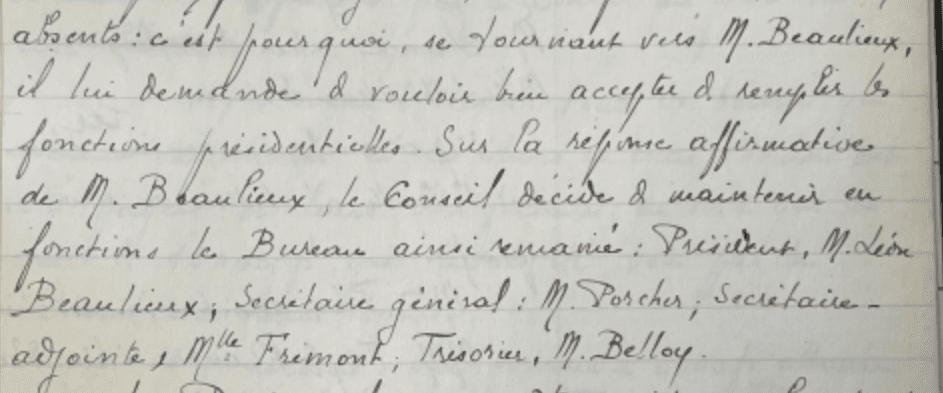 absents : c'est pourquoi, se tournant vers M. Beaulieux,
il lui demande d vouloir bien accepter d remplir les
fonctions présidentielles. Sur la réponse affirmative
de M. Beaulieux, le Conseil décide d maintenir en
fonctions le Bureau ainsi remanié : Président, M. Léon
Beaulieux ; Secrétaire général : M. Porcher ; Secrétaire-
adjointe, Mlle Frémont ; Trésorier, M. Belloy.